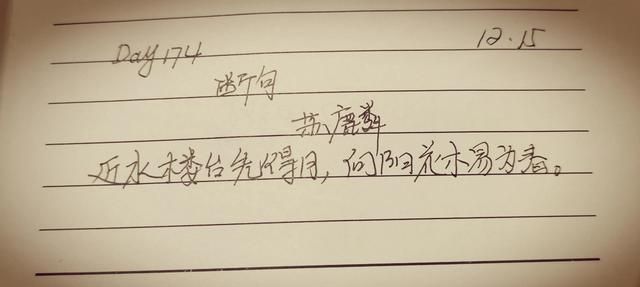 Day 174 12.15
断句
苏麟
近水楼台先得月，向阳花木易为春。